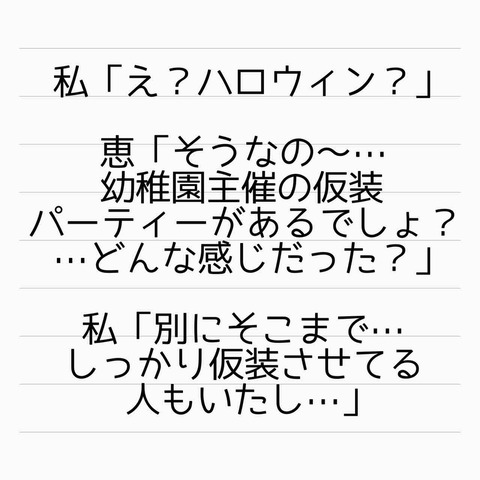 私「え？ハロウィン？」
恵「そうなの～…
幼稚園主催の仮装
パーティーがあるでしょ？
…どんな感じだった？」
私「別にそこまで…
しっかり仮装させてる
人もいたし…」